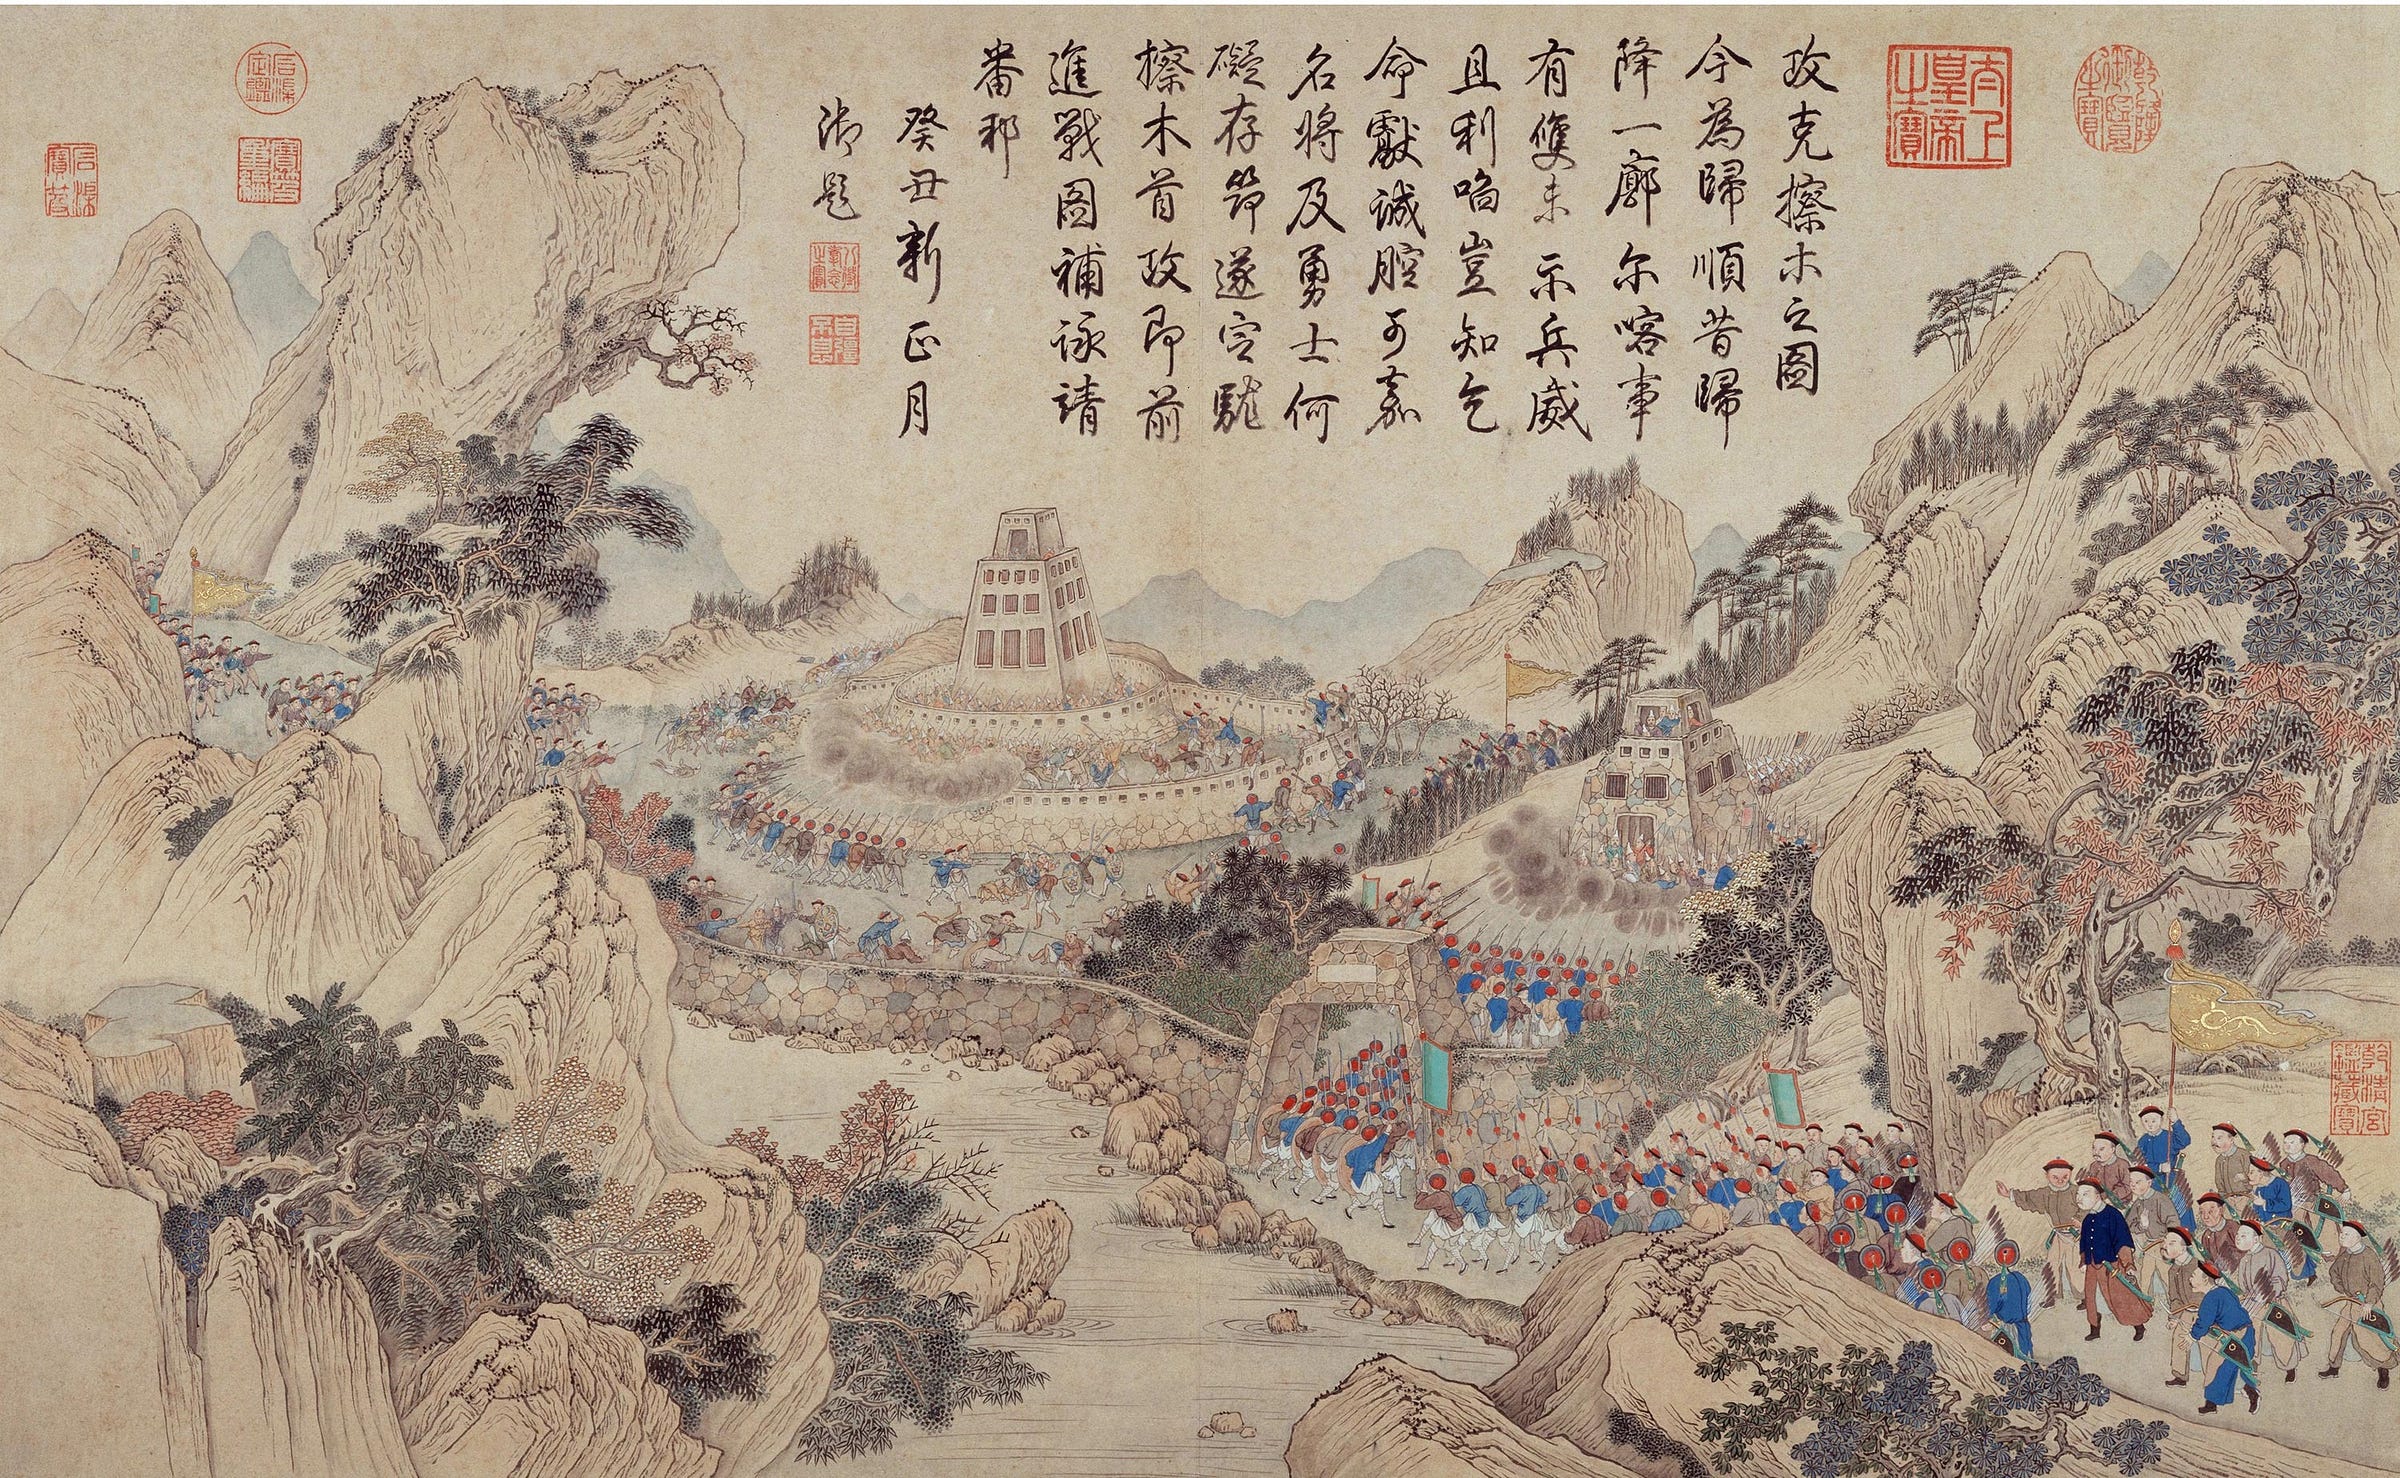 乾隆御覽之寶
太上皇帝之寶
攻克擦木之圖
今為歸順昔歸
降一廓尔喀事
有雙未示兵威
且利啗豈知乞
命獻誠腔可嘉
名將及勇士何
礙存筇遂定駹
擦木首攻即前
進戰圖補詠請
番邦
癸丑新正月
御題
八徵耄念之寶
自彊不息
石渠定鑑
寶笈重編
石渠寶笈
乾清宮鑑藏寶